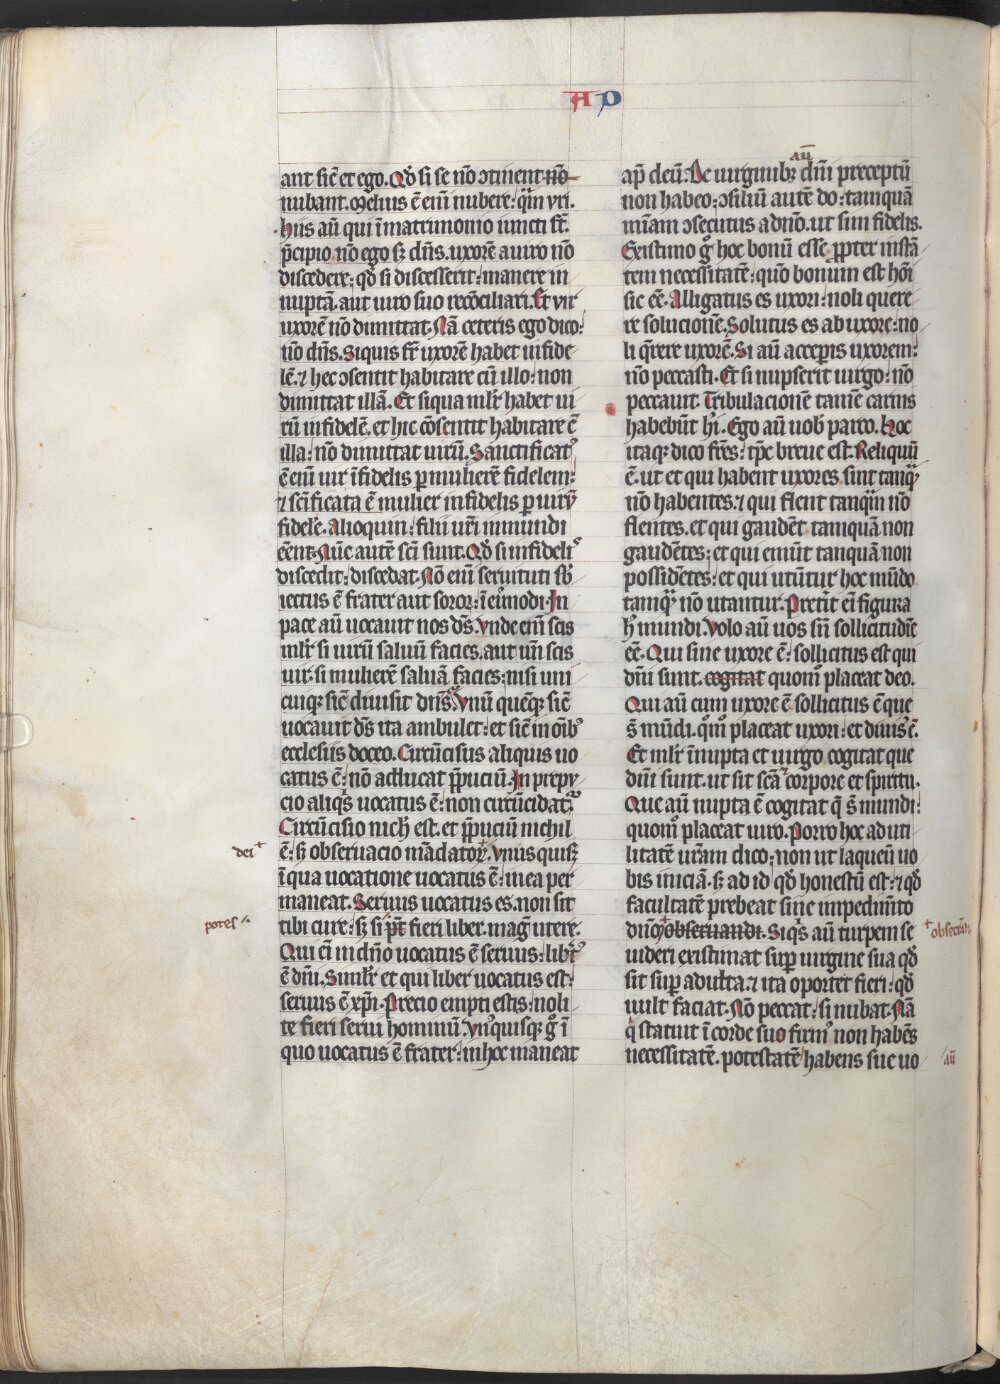 A D
ant sic̄ et ego. Qđ si se nō ↄtinent nō
nubant. Melius ē eni̅ nubere: q̄m vri.
Hiis aū qui i̅ matrimonio iuncti sr̄.
p̄cipio nō ego sꝫ dn̄s. uxorē a uiro nō
discedere: qđ si discesserit: manere in
nuptā. aut uiro suo recōciliari. Et vir
uxorē nō dimittat. Nā ceteris ego dico:
nō dn̄s. Siquis fr̄ uxorē habet infide
lē. ⁊ hec ↄsentit habitare cū illo: non
dimittat illā. Et siqua mlr̄ habet ui
rū infidelē. et hic cōsentit habitare c̄
illa: nō dimittat uirū. Sanctificat᷑
ē eni̅ uir i̅fidelis ꝑ mulierē fidelem:
⁊ sc̄ificata ē mulier infidelis ꝑ uirū
fidelē. Alioquin: filii ur̄i inmundi
eēnt. Nūc autē sc̄i sunt. Qđ si infideliꝰ
discedit: discedat. Nō eni̅ seruituti sƀ
iectus ē frater aut soror: i̅ eiꝰmodi. In
pace aū uocauit nos dꝰs. Vnde eni̅ scis
mlr̄ si uirū saluū facies. aut un̄ scis
uir. si mulierē saluā facies: nisi uni
cuiqꝫ sic̄ diuisit dn̄s. Vnū quēqꝫ sic̄
uocauit dꝰs ita ambulet: et sic̄ in oi̅bꝰ
ecclesiis doceo. Circūcisus aliquis uo
catus ē: nō adducat p̄puciū. In prepu
cio aliq̄s uocatus ē: non circūcidat᷑.
Circūcisio nich̄ est. et p̄puciū nichil
ē: sꝫ obseruacio mādatoꝝ. Vnusquisqꝫ
dei
i̅ qua uocatione uocatus ē: in ea per
maneat. Seruus uocatus es. non sit
tibi cure: sꝫ si pt̄ fieri liber. mag̕ utere.
potes
Qui ei̅ in dn̄o uocatus ē seruus: libt̕ꝰ
ē dn̄i. Similr̄ et qui liber uocatus est:
seruus ē xp̄i. Precio empti estis: noli
te fieri serui hominū. Vnꝰquisqꝫ gͦ i̅
quo uocatus ē frater: in hoc maneat
aū
ap̄ deū. De uirginibꝫ dn̄i preceptū
non habeo: ↄsiliū autē do: tamquā
mi̅am ↄsecutus a dn̄o. ut sim fidelis.
Existimo gͦ hoc bonū esse ꝓpter instā
tem necessitatē: quō bonum est hōi
sic eē. Alligatus es uxori: noli quere
re solucionē. Solutus es ab uxore: no
li q̄rere uxorē. Si aū acceperis uxorem:
nō peccasti. Et si nupserit uirgo: nō
peccauit. Tribulacionē tamē carnis
habebūt hꝰi. Ego aū uob̄ parco. Hoc
itaqꝫ dico fr̄es: tp̄c breue est. Reliquū
ē. ut et qui habent uxores sint tanq̄
nō habentes. ⁊ qui flent tanq̄m nō
flentes. et qui gaudēt tamquā non
gaudētes: et qui emūt tanquā non
possidētes: et qui utūtur hoc mūdo
tamq̄ nō utantur. Preterit ei̅ figura
hꝰ mundi. Volo aū uos sin̄ sollicitudīe
eē. Qui sine uxore ē: sollicitus est qui
dn̄i sunt. cogitat quomꝰ placeat deo.
Qui aū cum uxore ē sollicitus ē que
s̄ mūdi. q̄mꝰ placeat uxori: et diuisꝰ ē.
Et mlr̄ i̅nupta et uirgo cogitat que
dn̄i sunt. ut sit sc̄a corpore et spiritu.
Que aū nupta ē cogitat q̄ s̄ mundi:
quomꝰ placeat uiro. Porro hoc ad uti
litatē ur̄am dico: non ut laqueū uo
bis iniciā. sꝫ ad id qđ honestū est: ⁊ qđ
facultatē prebeat sine impedim̄to
dn̄o obseruandi. Siq̄s aū turpem se
obsecrādi
uideri existimat suꝑ uirgine sua qđ
sit suꝑ adulta. ⁊ ita oportet fieri: qđ
uult faciat. Nō peccat: si nubat. Nā
q̄ statuit i̅ corde suo firmꝰ non habēs
necessitatē. potestatē habens sue uo
aū